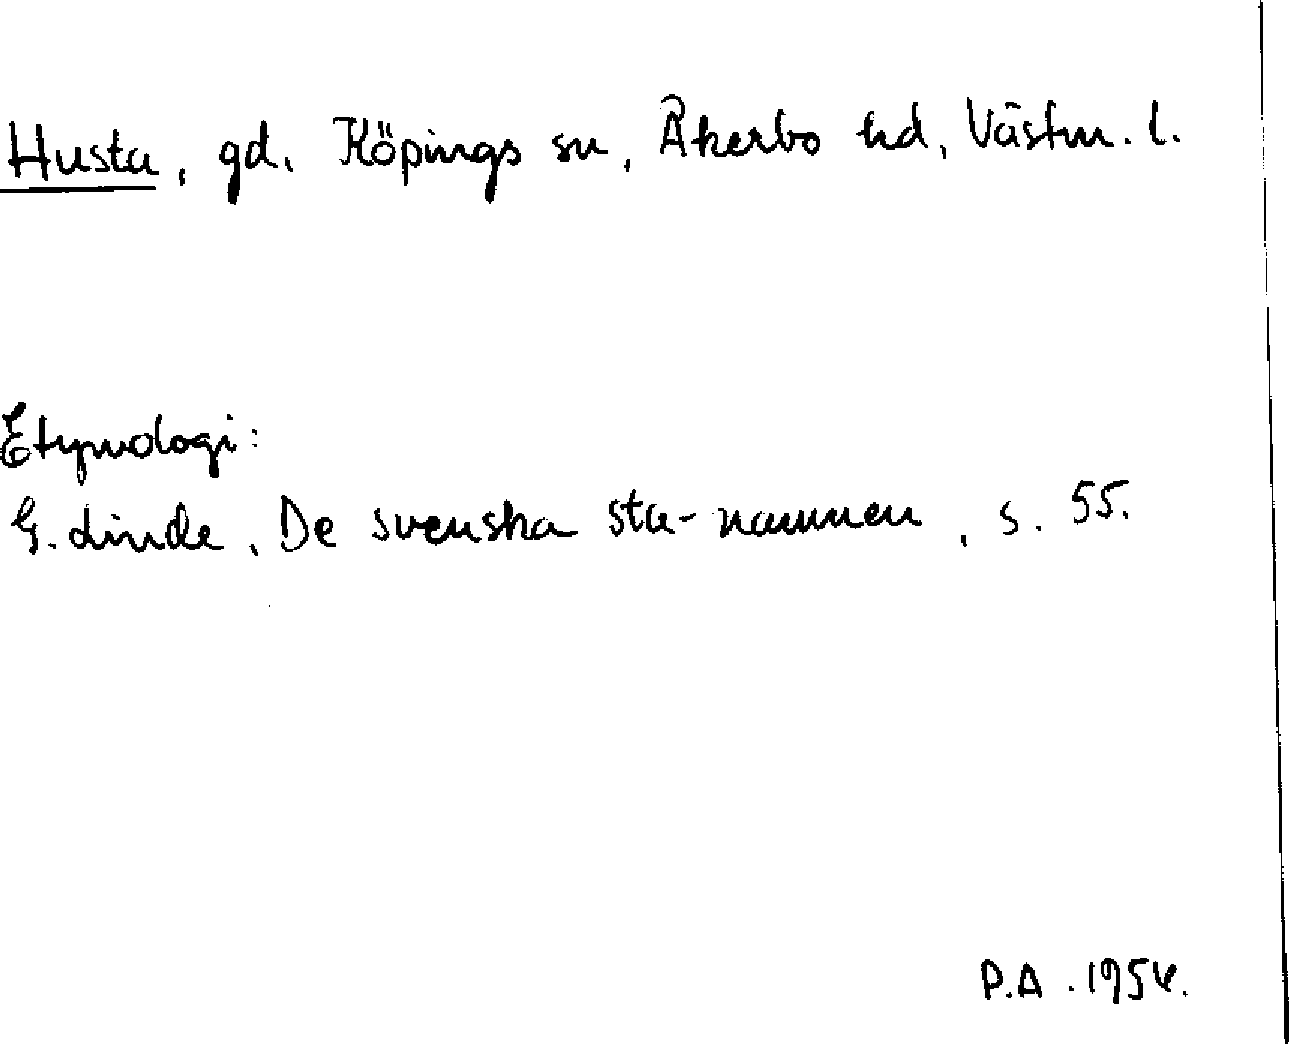 Husta, gd. Köpings sn, Åkerbo hd, Västm. l.
Etymologi:
G. Linde, De svenska sta-namnen, s. 55.
P.A. 1954.